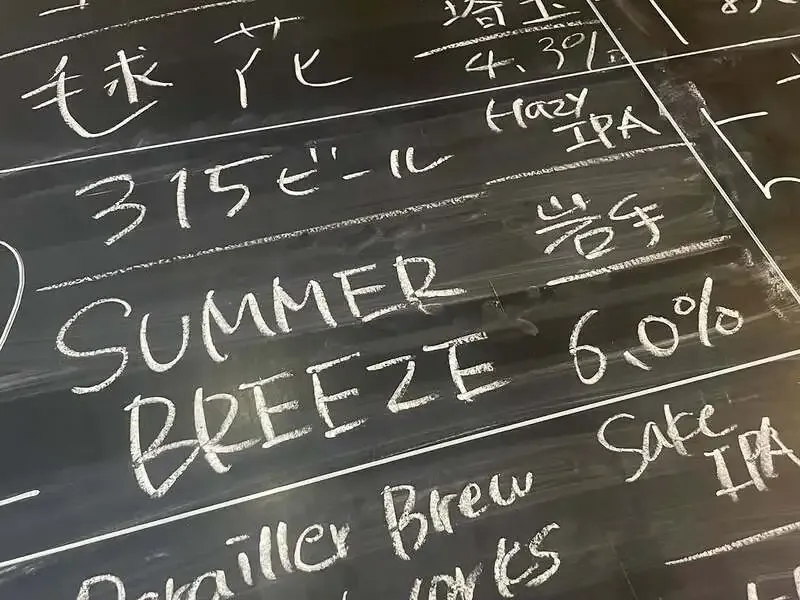 埼玉
毬花
4.3%
Hazy
IPA
315ビール
岩手
SUMMER
BREEZE
6.0%
Sake
IPA
Derailleur Brew
Works